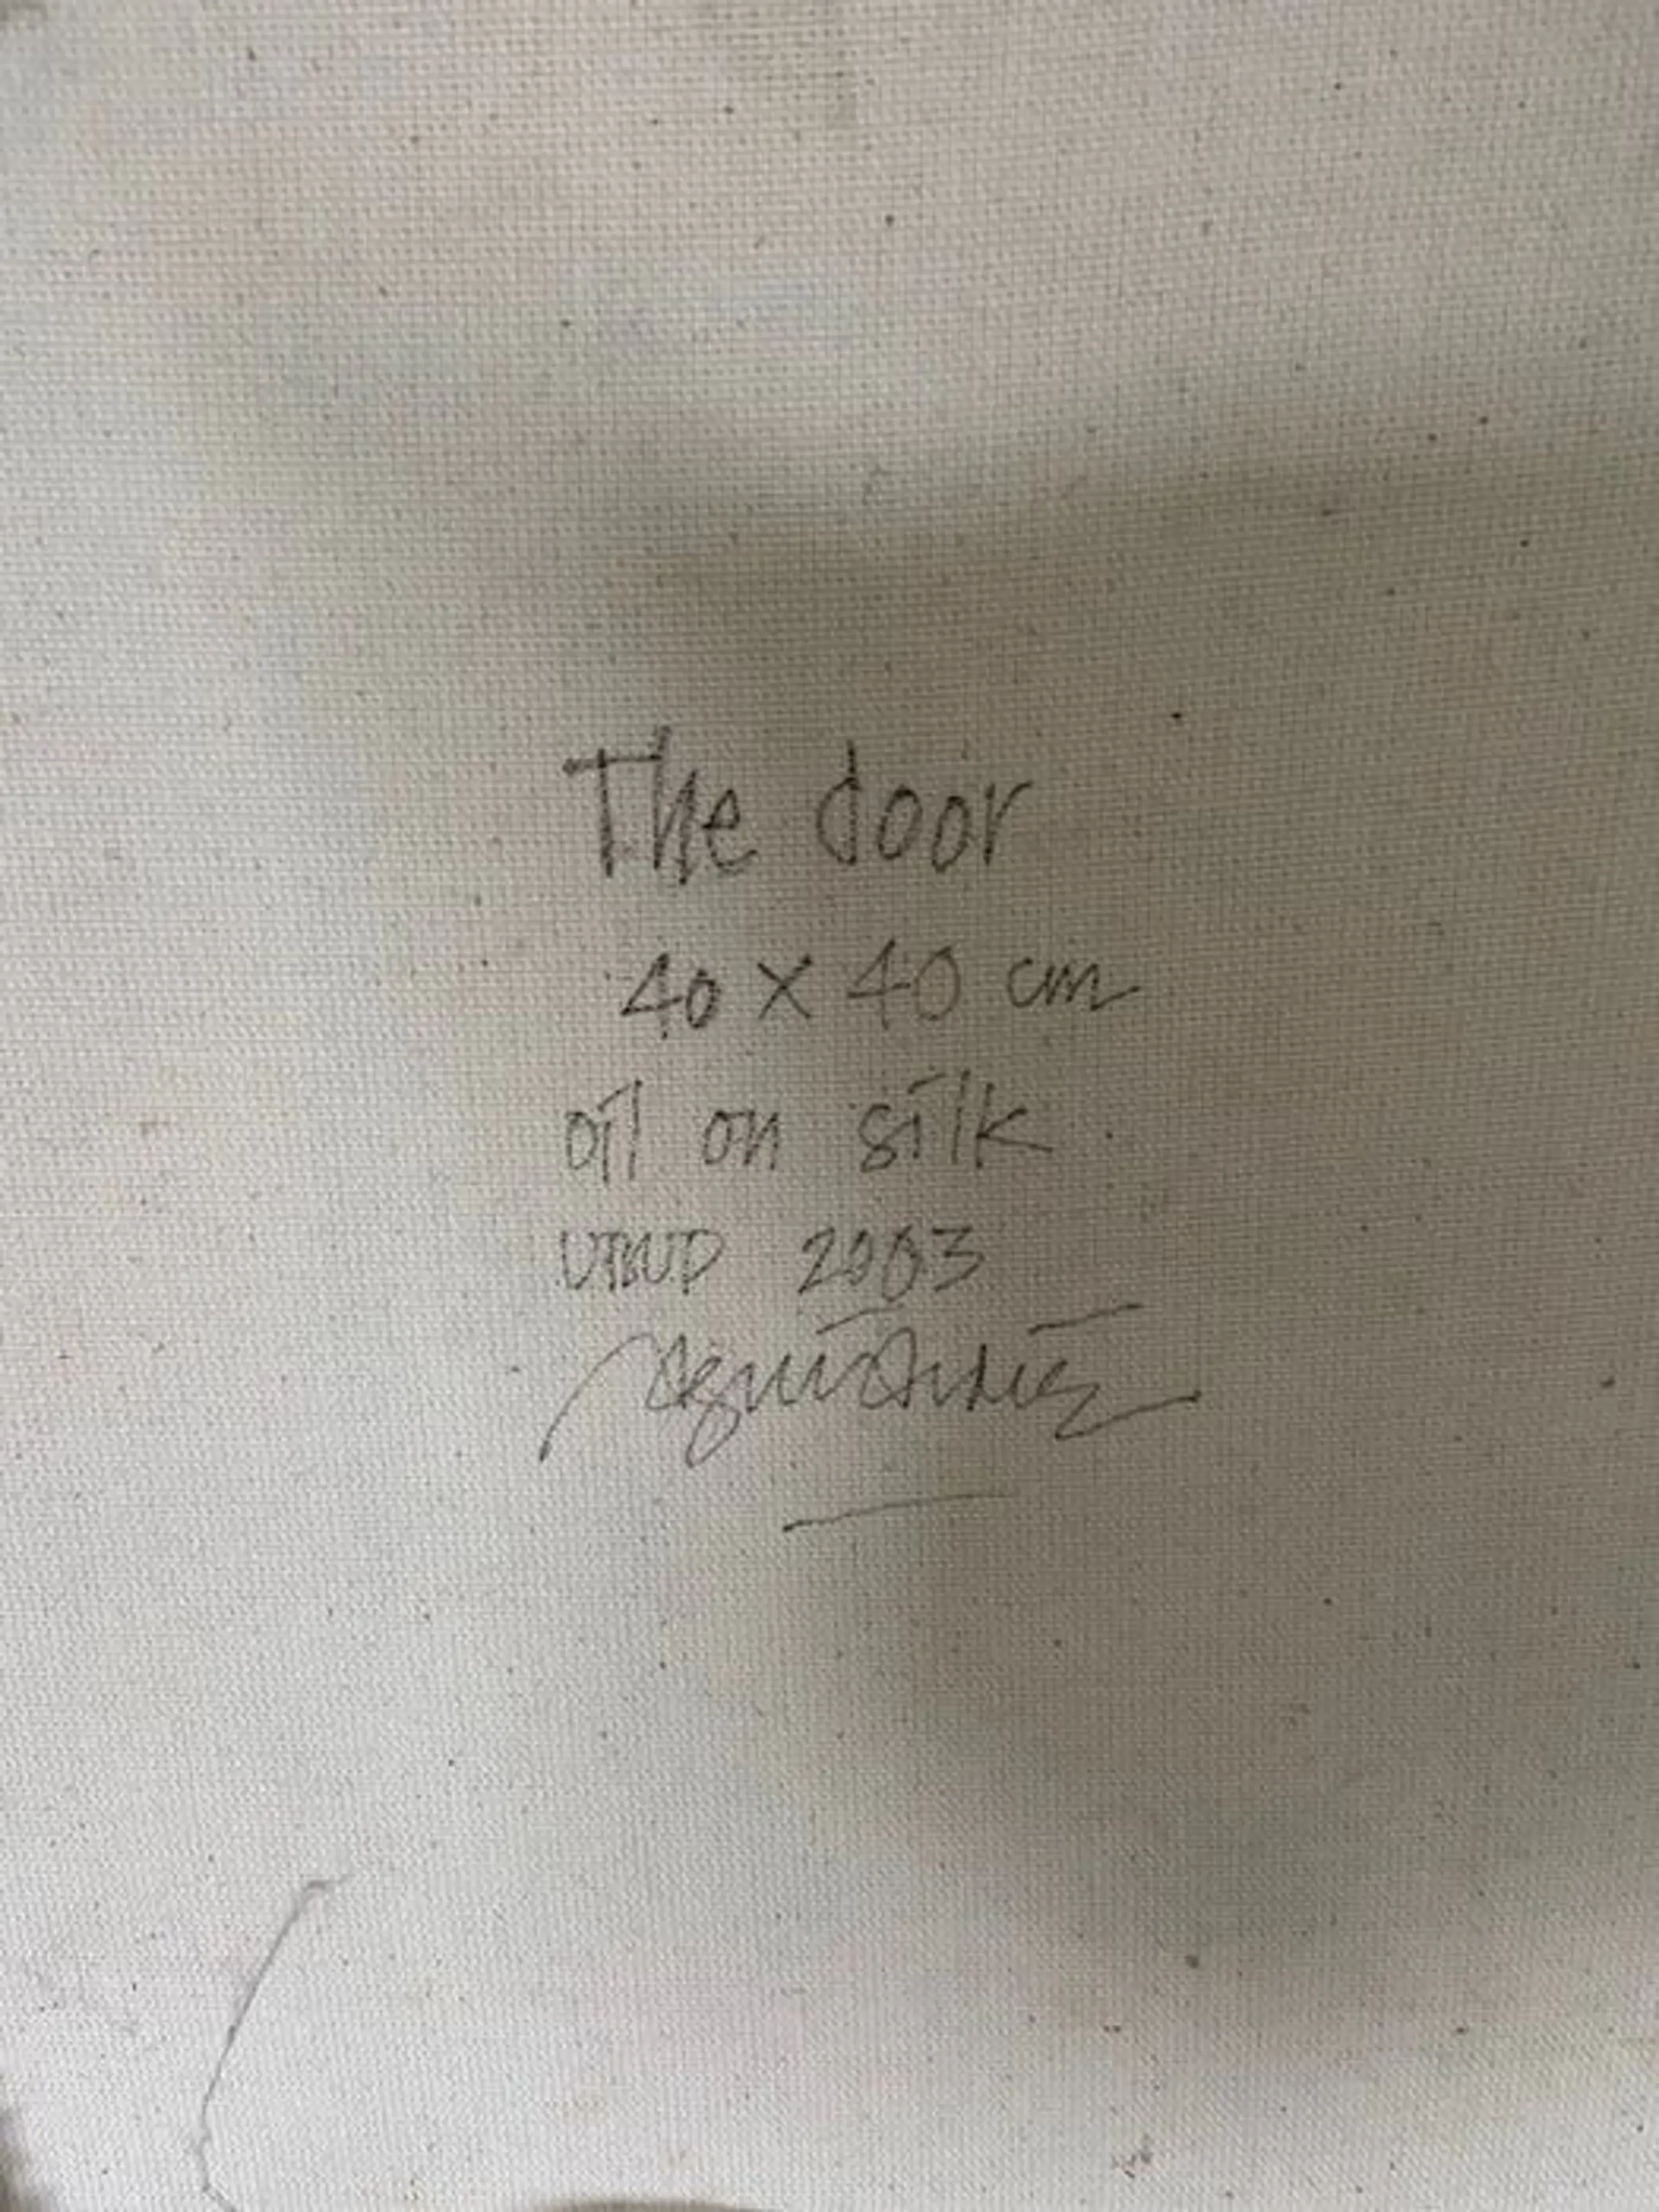 The door
40 X 40 cm
oil on silk
UBUD 2003